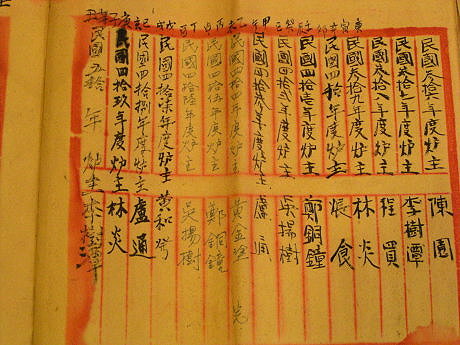 民國叁拾年度炉主 陳園
民國叁拾年度炉主 李樹潭
民國叁拾年度炉主 程買
庚寅 民國叁拾九年度炉主 林炎
辛卯 民國四拾年度炉主 張食
民國四拾壹年度炉主 鄭銅鐘
民國四拾弍年度炉主 吳揚樹
民國四拾叁年度炉主 盧
民國四拾四年度炉主 黃金塗
民國四拾伍年度炉主 鄭銅鐘
民國四拾陸年度炉主 吳揚樹
戊戌 民國四拾柒年度炉主 黃和
民國四拾捌年度炉主 盧通
民國四拾玖年度炉主 林炎
民國五拾年 炉主 李樹潭